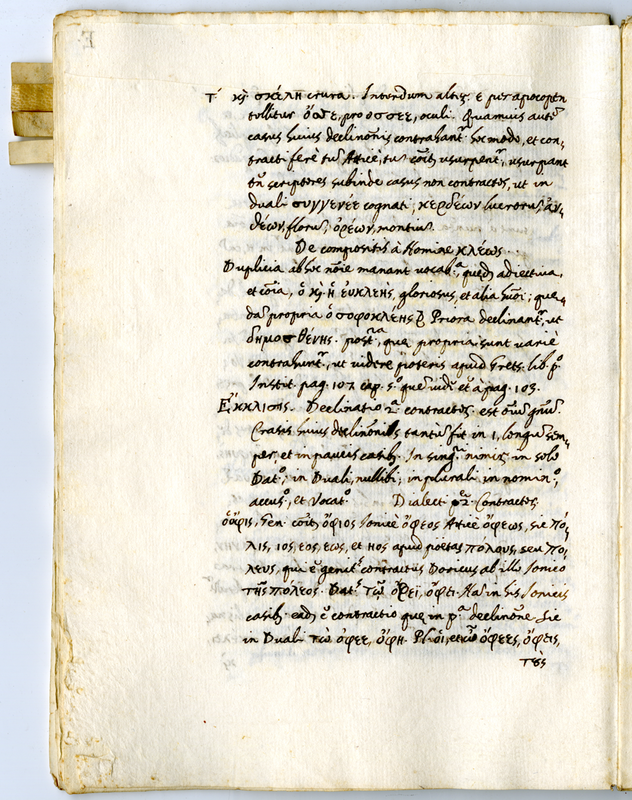 τ' κỳ σκέλη crura. Interdum alterũ ε per apocopen
tollitur ὄσσε, pro οσσεε, oculi. Quamuis autẽ
casus huius declinõnis contrahantr hoc modo, et con-
tracti ferè tũ Atticè, tũ cõitr usurpentr, usurpant
tñ scriptores subinde casus non contractos, ut in
duali συγγενέε cognati; κερδέων lucrorũ, ἀν-
θέων, florũ, ὀρέων, montiũ.
De compositis à Nomine κλέως.
Duplicia ab hoc nõie manant vocaba, quedã adiectiva,
et cõia, ὁ κỳ ἡ ἐυκλεὴς, gloriosus, et alia hmõi; que-
dã propria ὁ σοφοκλεης Priora declinantr, ut
δημοσθένης. postra, que propria sunt variè
contrahuntr, ut videre poteris apud Grets. lib. po.
Instit. pag. 107. cap. 5o que vidi et à pag. 105.
Ἔκκλισης. Declinatio 2a contractorũ est oĩũ gñũ.
Crasis huius declinõnis tantũ fit in ι, longũ sem-
per, et in paucis casibȝ. In singri nimirũ in solo
Dato, in Duali, nullibi, in plurali in nomino,
accuso, et Vocato. Dialect 2ȩ Contractorũ.
ὁ ὄφις, Gen. cõitr ὄφιος Ionicè ὄφεος Atticè ὄφεως, sic πό-
λις, ιος, εος, εως, et ηος apud poëtas πόληος, seu πο-
λευς, qui ẽ genits contractus Doricus ab illo Ionico
τῆς πόλεος. Dats τῷ ὄφεϊ, ὄφει. Nã in his Ionicis
casibȝ eadẽ ẽ contractio que in pa declinõne. Sic
in Duali τὼ ὄφεε, ὄφη. Plĩ οἱ, et ὦ ὄφεες, ὄφεις,
τοὺς